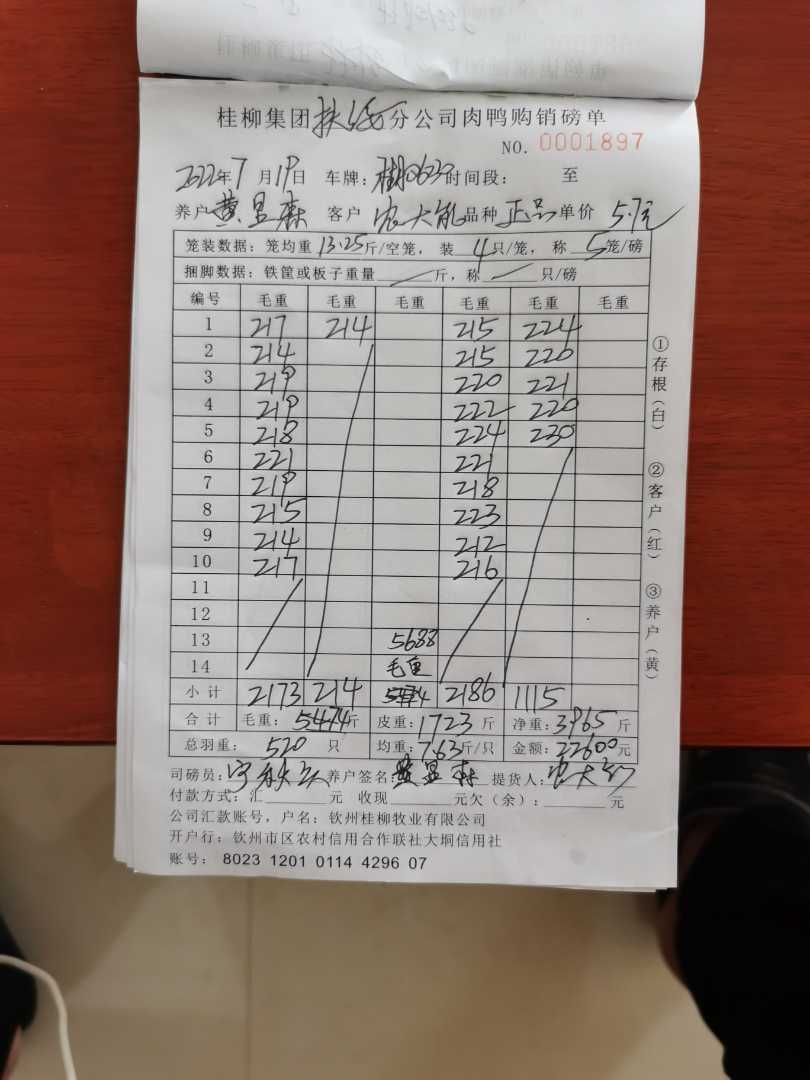 桂柳集团扶绥分公司肉鸭购销磅单
NO. 0001897
2022年7月19日 车牌: 时间段: 至
养户黄显森 客户 农大 品种 正品 单价 5.7元
笼装数据: 笼均重 13.25 斤/空笼, 装 4 只/笼, 称 5 笼/磅
捆脚数据: 铁筐或板子重量 斤, 称 只/磅
编号 毛重 毛重 毛重 毛重 毛重 毛重
1 217 214 215 224
2 214 215 220
3 219 220 221
4 219 222 220
5 218 224 230
6 221 221
7 219 218
8 215 223
9 214 212
10 217 216
11
12
13 5688
14 毛鱼
小计 2173 214 2186 1115
合计 毛重: 5474斤 皮重: 1723 斤 净重: 3965 斤
总羽重: 520 只 均重: 7.63斤/只 金额: 22600元
司磅员: 养户签名: 黄显森 提货人: 农大
付款方式: 汇 元 收现 元欠(余): 元
公司汇款账号, 户名: 钦州桂柳牧业有限公司
开户行: 钦州市区农村信用合作联社大垌信用社
账号: 8023 1201 0114 4296 07
①存根(白) ②客户(红) ③养户(黄)